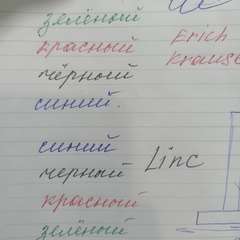 зелёный
красный
чёрный
синий.
Erich
Krause
синий
черный
красный
зелёный
Linc